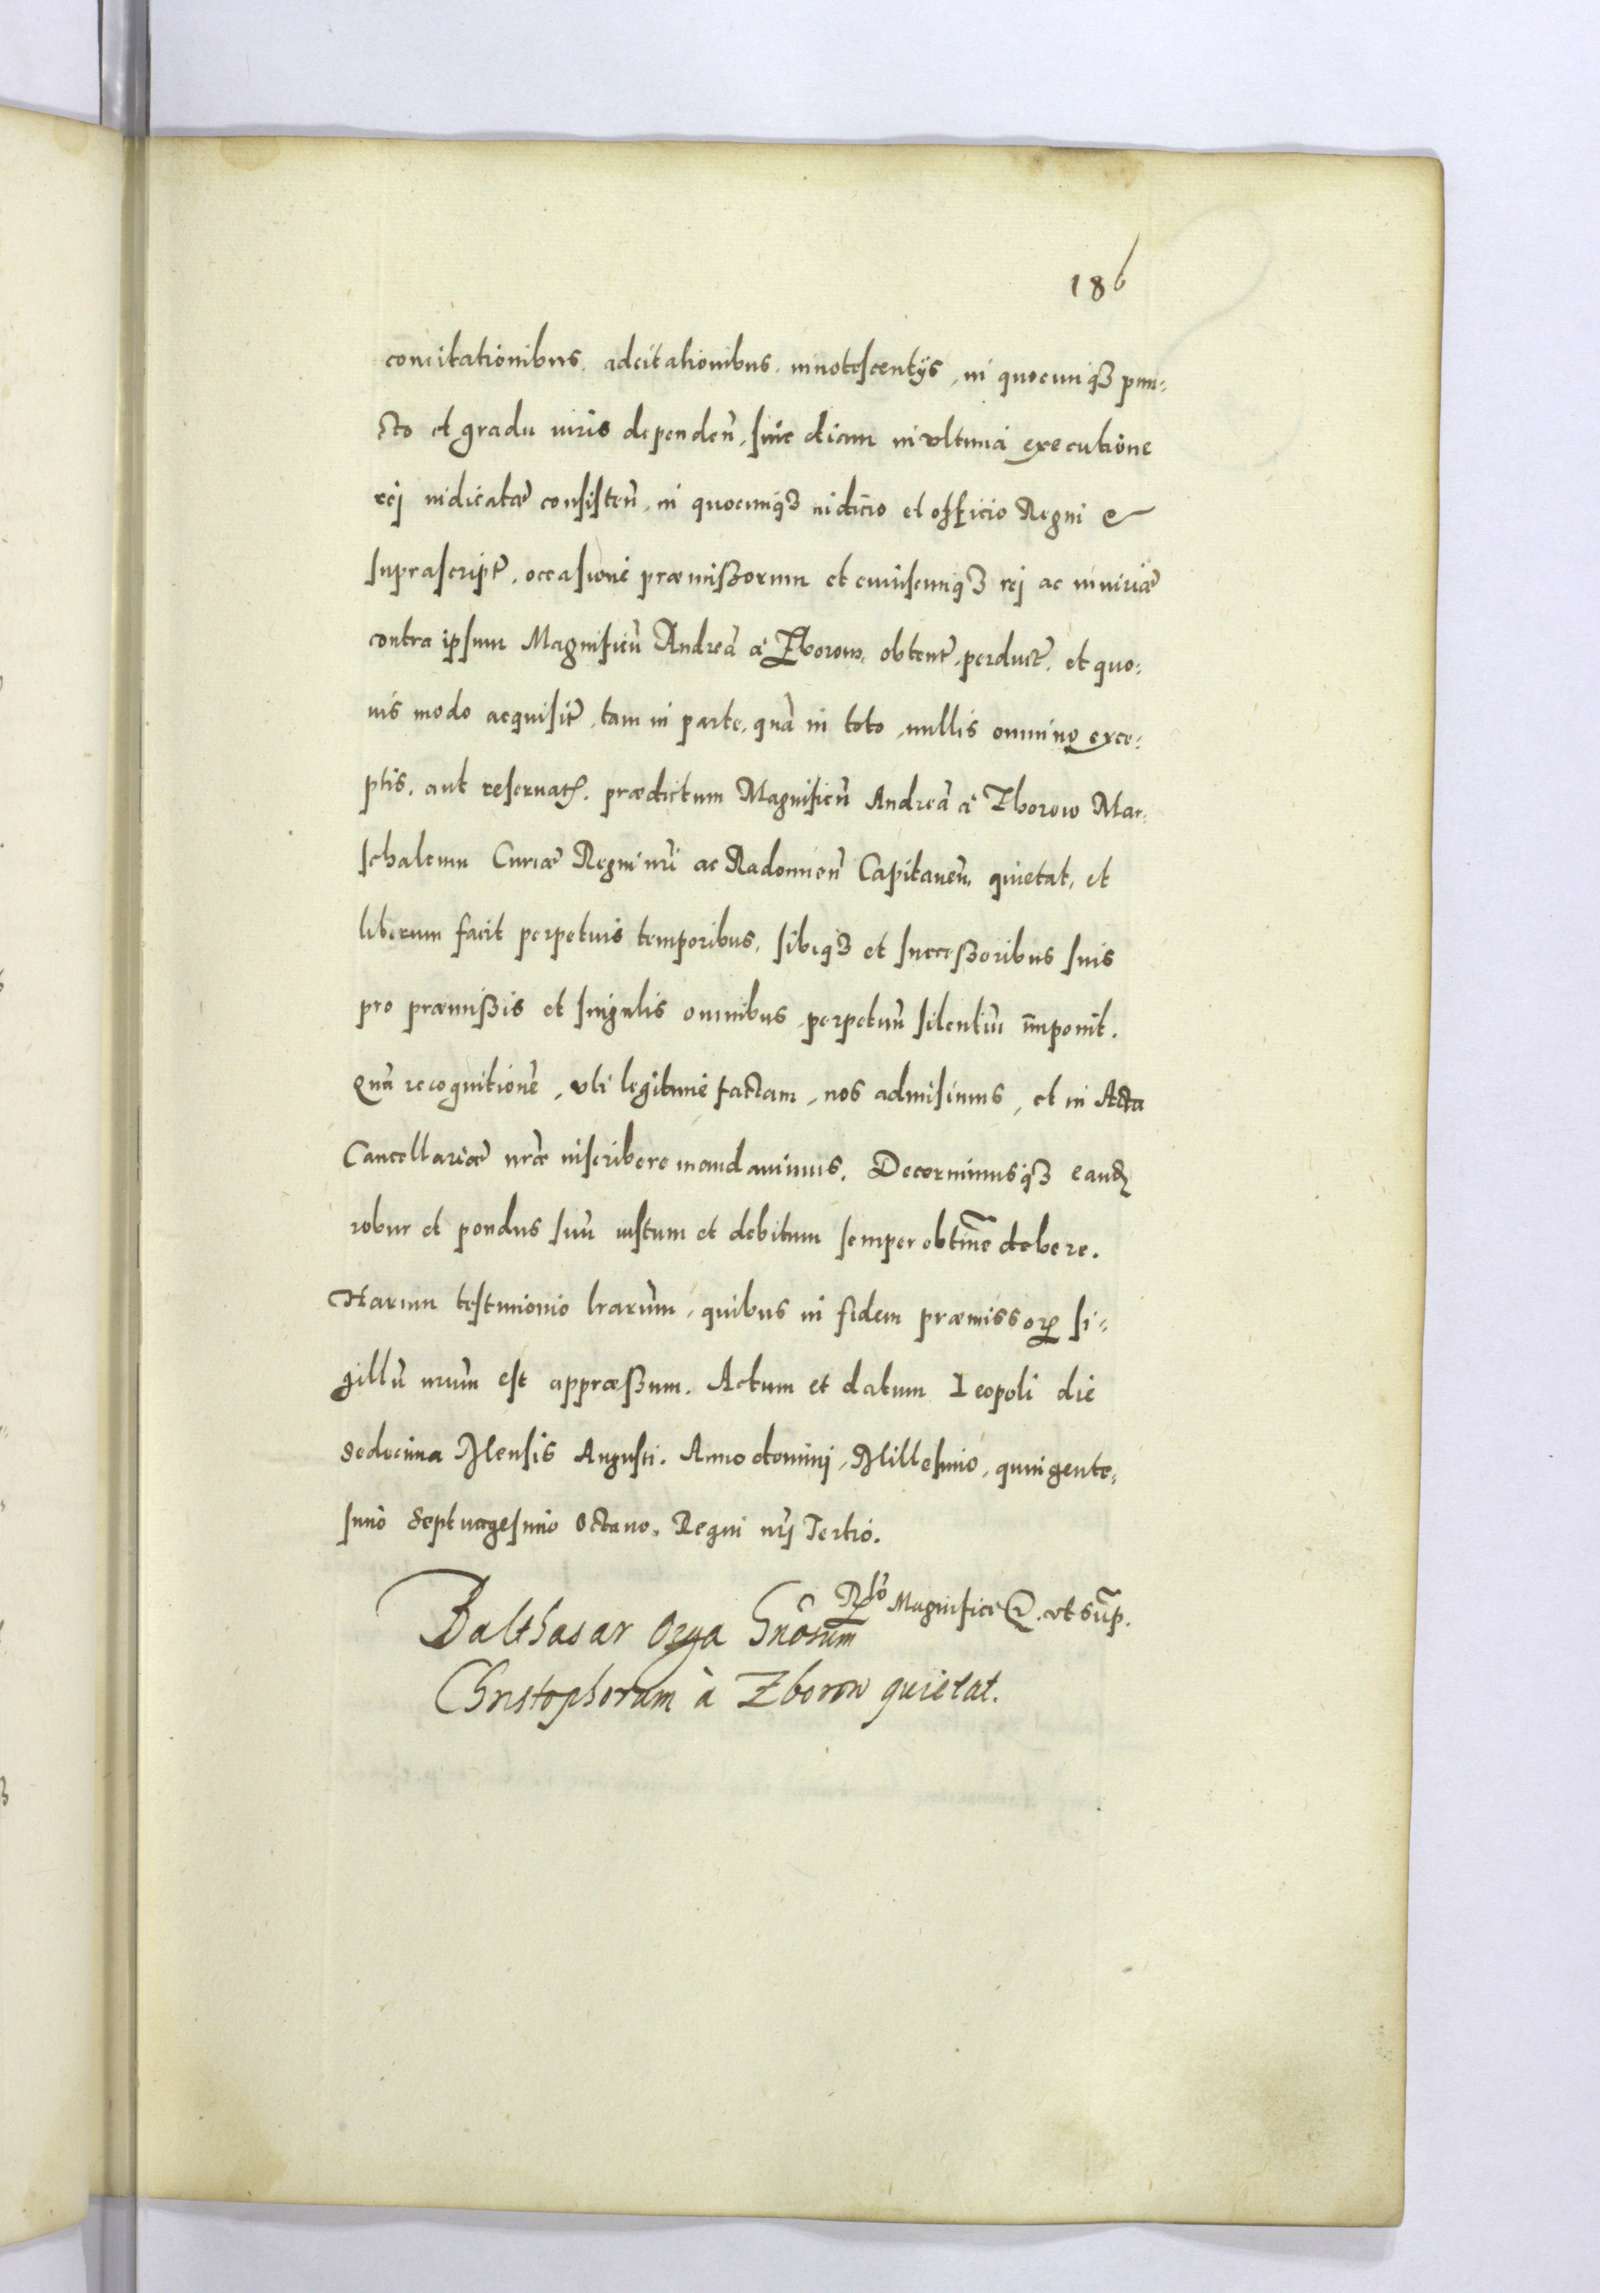 186
concitationibus, adcitationibus, innotescentijs, in quocunq3 pun-
cto et gradu iuris dependeñ, siue etiam in vltima executione
rej iudicatæ consisteñ, in quocunq3 iudicio et officio Regni &
suprascript̃, occasione præmissorum et cuiuscunq3 rej ac iniuriæ
contra ipsum Magnificũ Andreã à Zborow, obtent̃, perduct̃, et quo-
uis modo acquisit̃, tam in parte, quã in toto, nullis omnino exce-
ptis, aut reseruat̃, prædictum Magnificũ Andreã à Zborow Mar-
schalcum Curiæ Regni nr̃i ac Radomieñ Capitaneũ, quietat, et
liberum facit perpetuis temporibus, sibiq3 et successoribus suis
pro præmissis et singulis omnibus, perpetuũ silentiũ imponit.
Quã recognitionẽ, vti legitimè factam, nos admisimus, et in Acta
Cancellariæ nr̃æ inscribere mandauimus. Decernimusq3 eand̃
robur et pondus suũ iustum et debitum semper obtin̄e debere.
Harum testimonio lr̃arum, quibus in fidem præmissor̃ si-
gillũ nr̃um est appræssum. Actum et datum Leopoli die
sedecima Mensis Augusti. Anno dominj, Millesimo, quingente-
simo Septuagesimo Octauo, Regni nr̃j Tertio.
Rẽlo Magnifici &. vt sup̃.
Balthasar Ozga Gñosum
Christophorum à Zborow quietat.